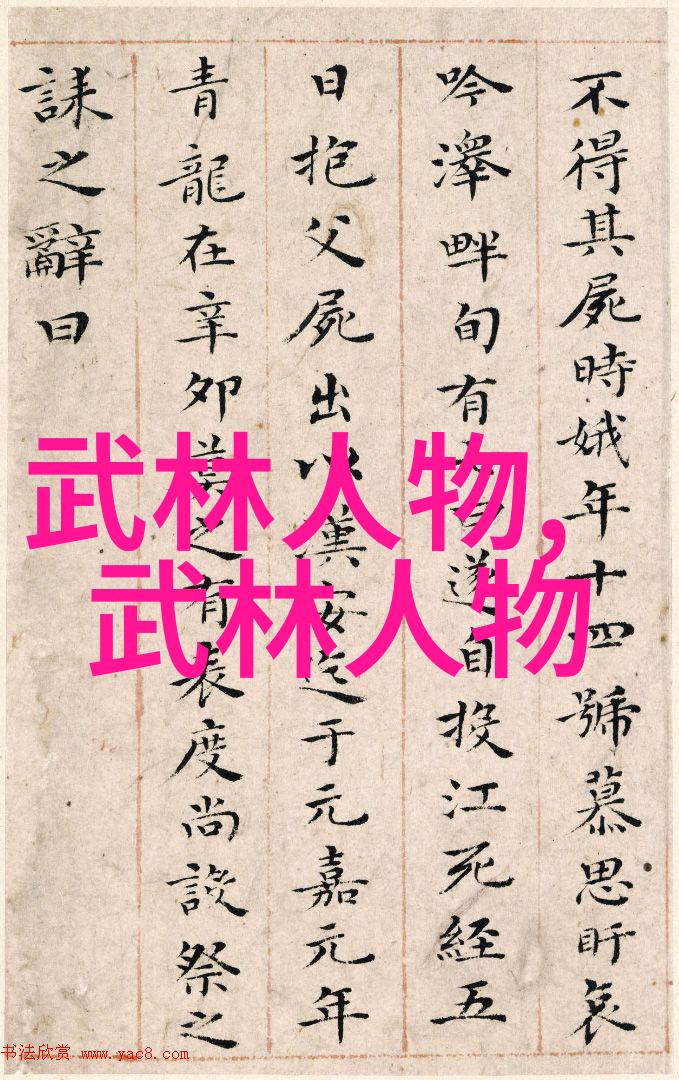 不得其屍時娥年十四號慕思盱哀
吟澤畔旬有遂自投江死經五
日抱父屍出以漢安迄于元嘉元年
青龍在辛卯莫之有表度尚設祭之
誄之辭曰
武林人物,
武林人物
书法欣赏 www.yac8.com